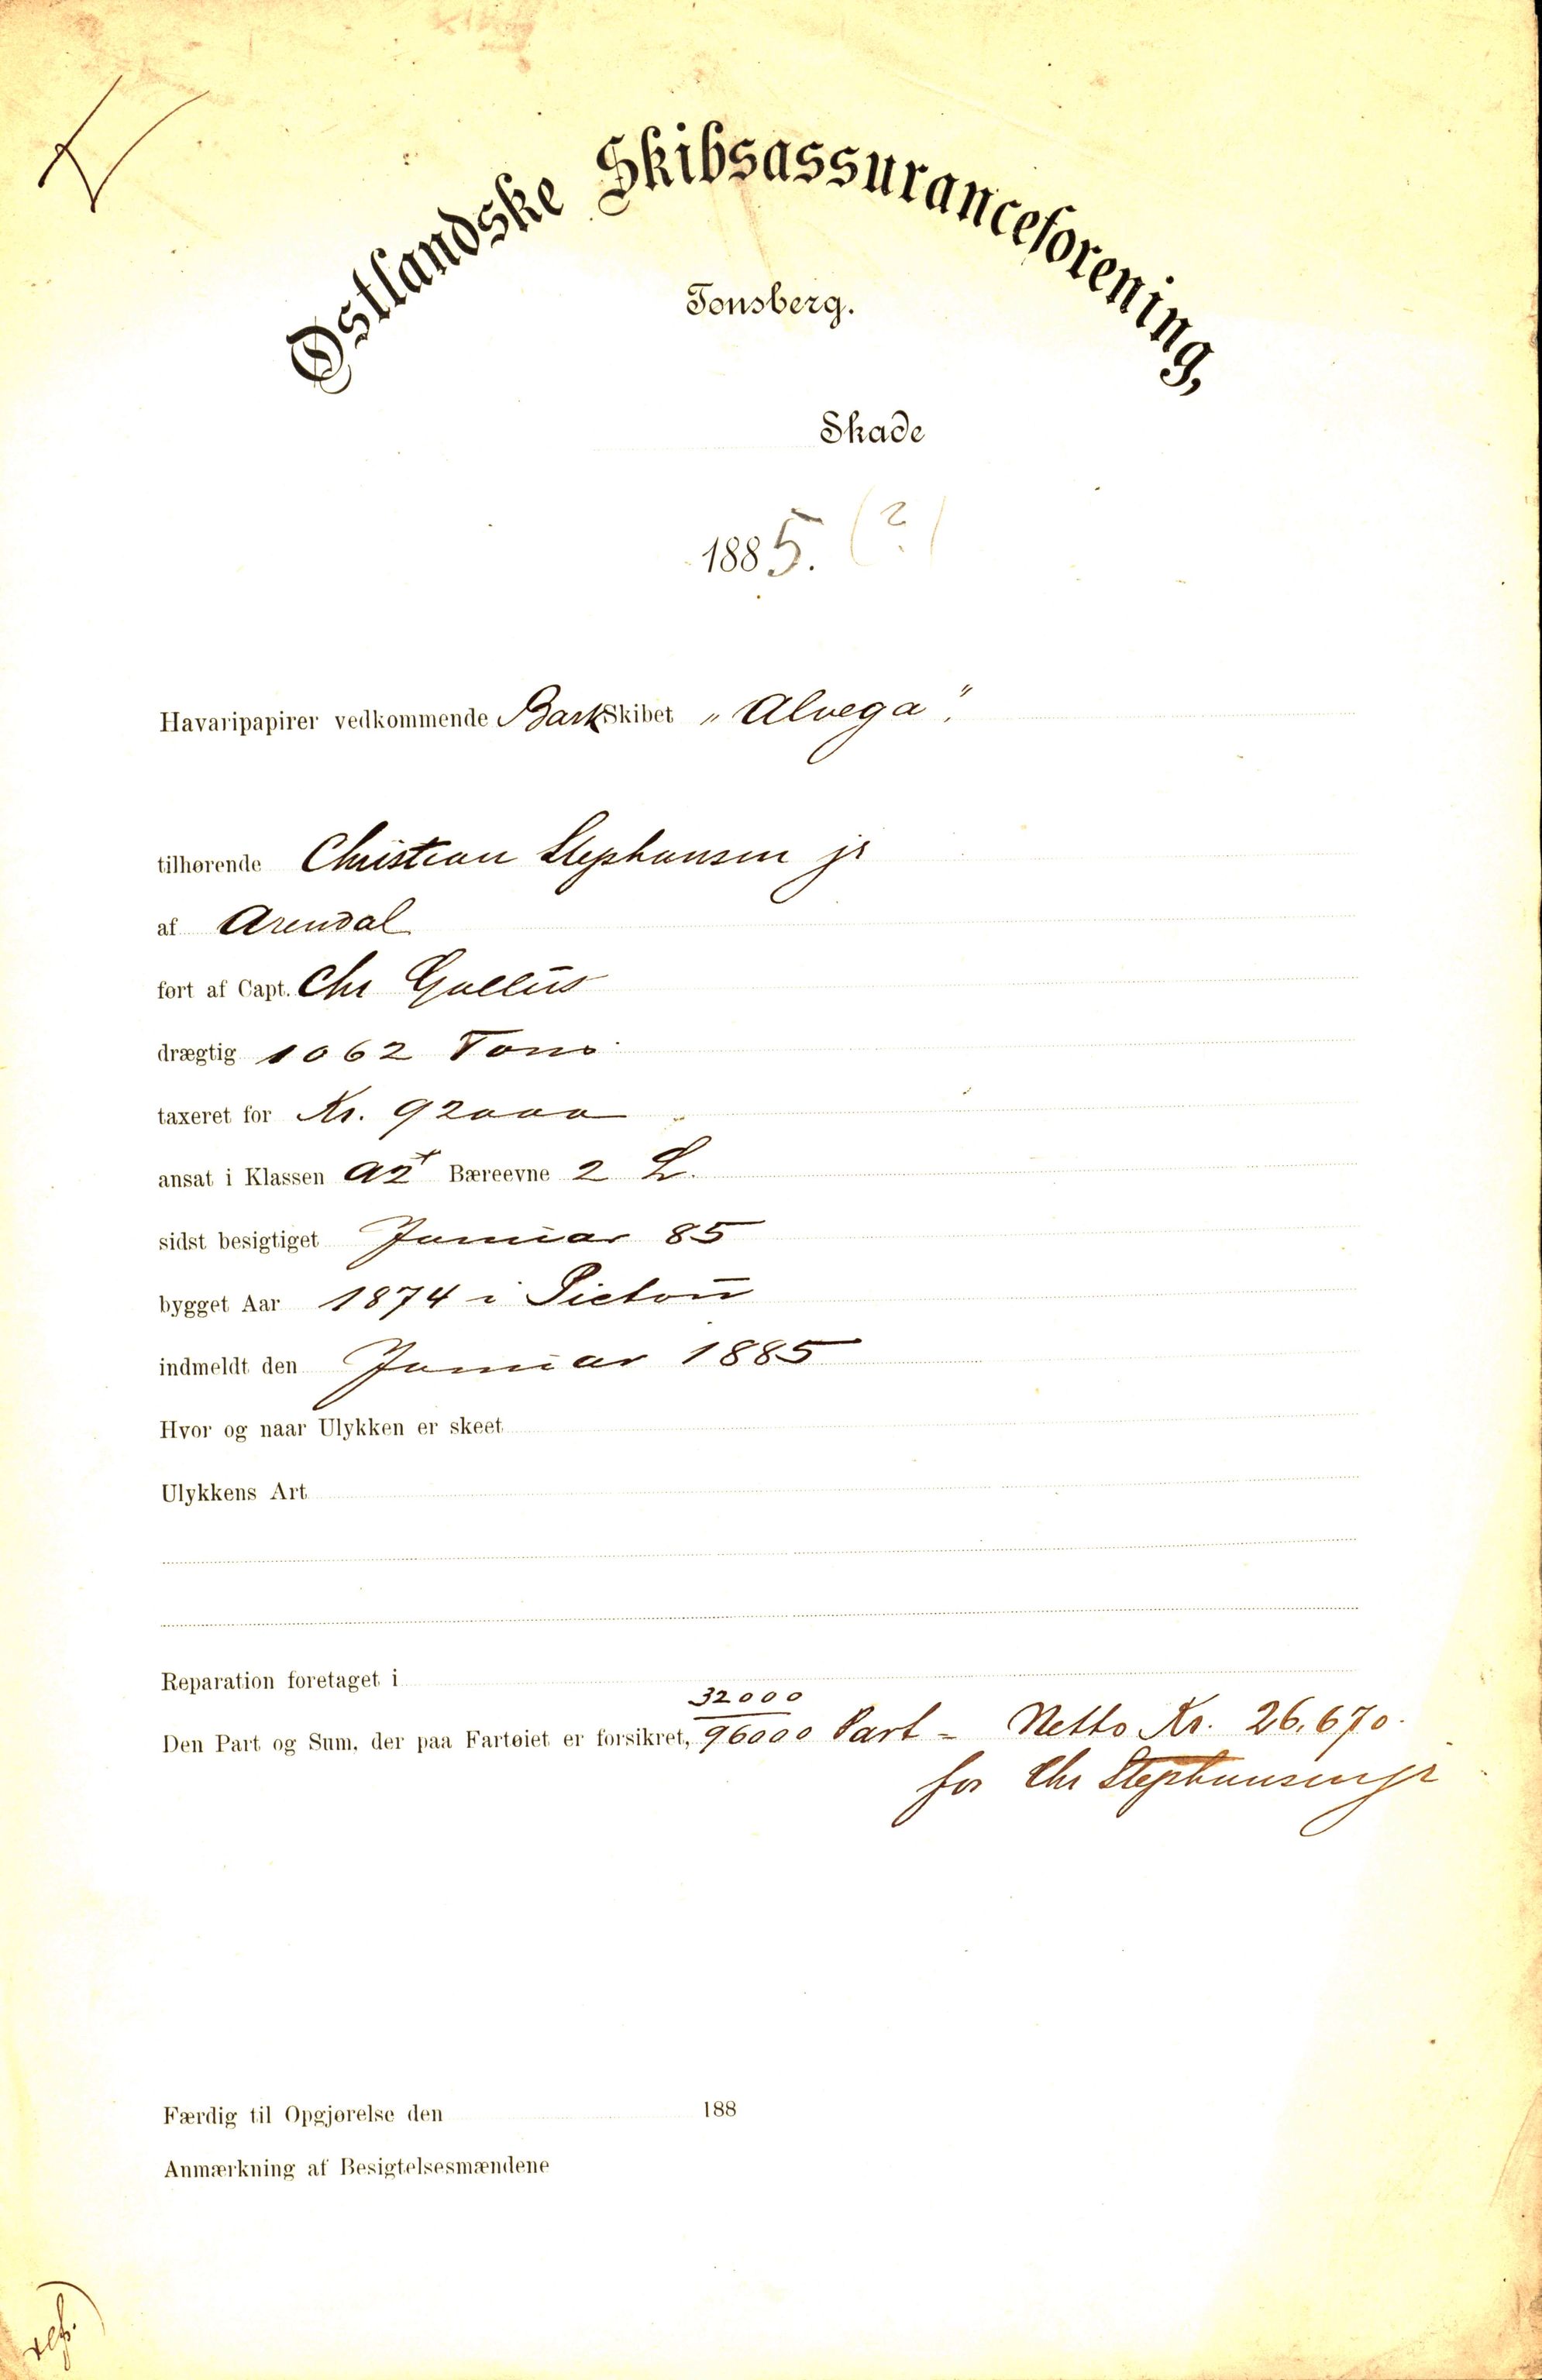 Østlandske Skibsassuranceforening,
Tønsberg.
Skade
1885. (?)
Havaripapirer vedkommende Bark Skibet „Alvega“.
tilhørende Christian Stephansen jr
af Arendal
ført af Capt. Chr Gullus
drægtig 1062 Tons
taxeret for Kr. 92000
ansat i Klassen A2+ Bæreevne 2 L.
sidst besigtiget Januar 85
bygget Aar 1874 i Pictou
indmeldt den Januar 1885
Hvor og naar Ulykken er skeet
Ulykkens Art
Reparation foretaget i
32000
Den Part og Sum, der paa Fartøiet er forsikret, 96000 Part = Netto Kr. 26,670.
for Chr Stephansen jr
Færdig til Opgjørelse den 188
Anmærkning af Besigtelsesmændene